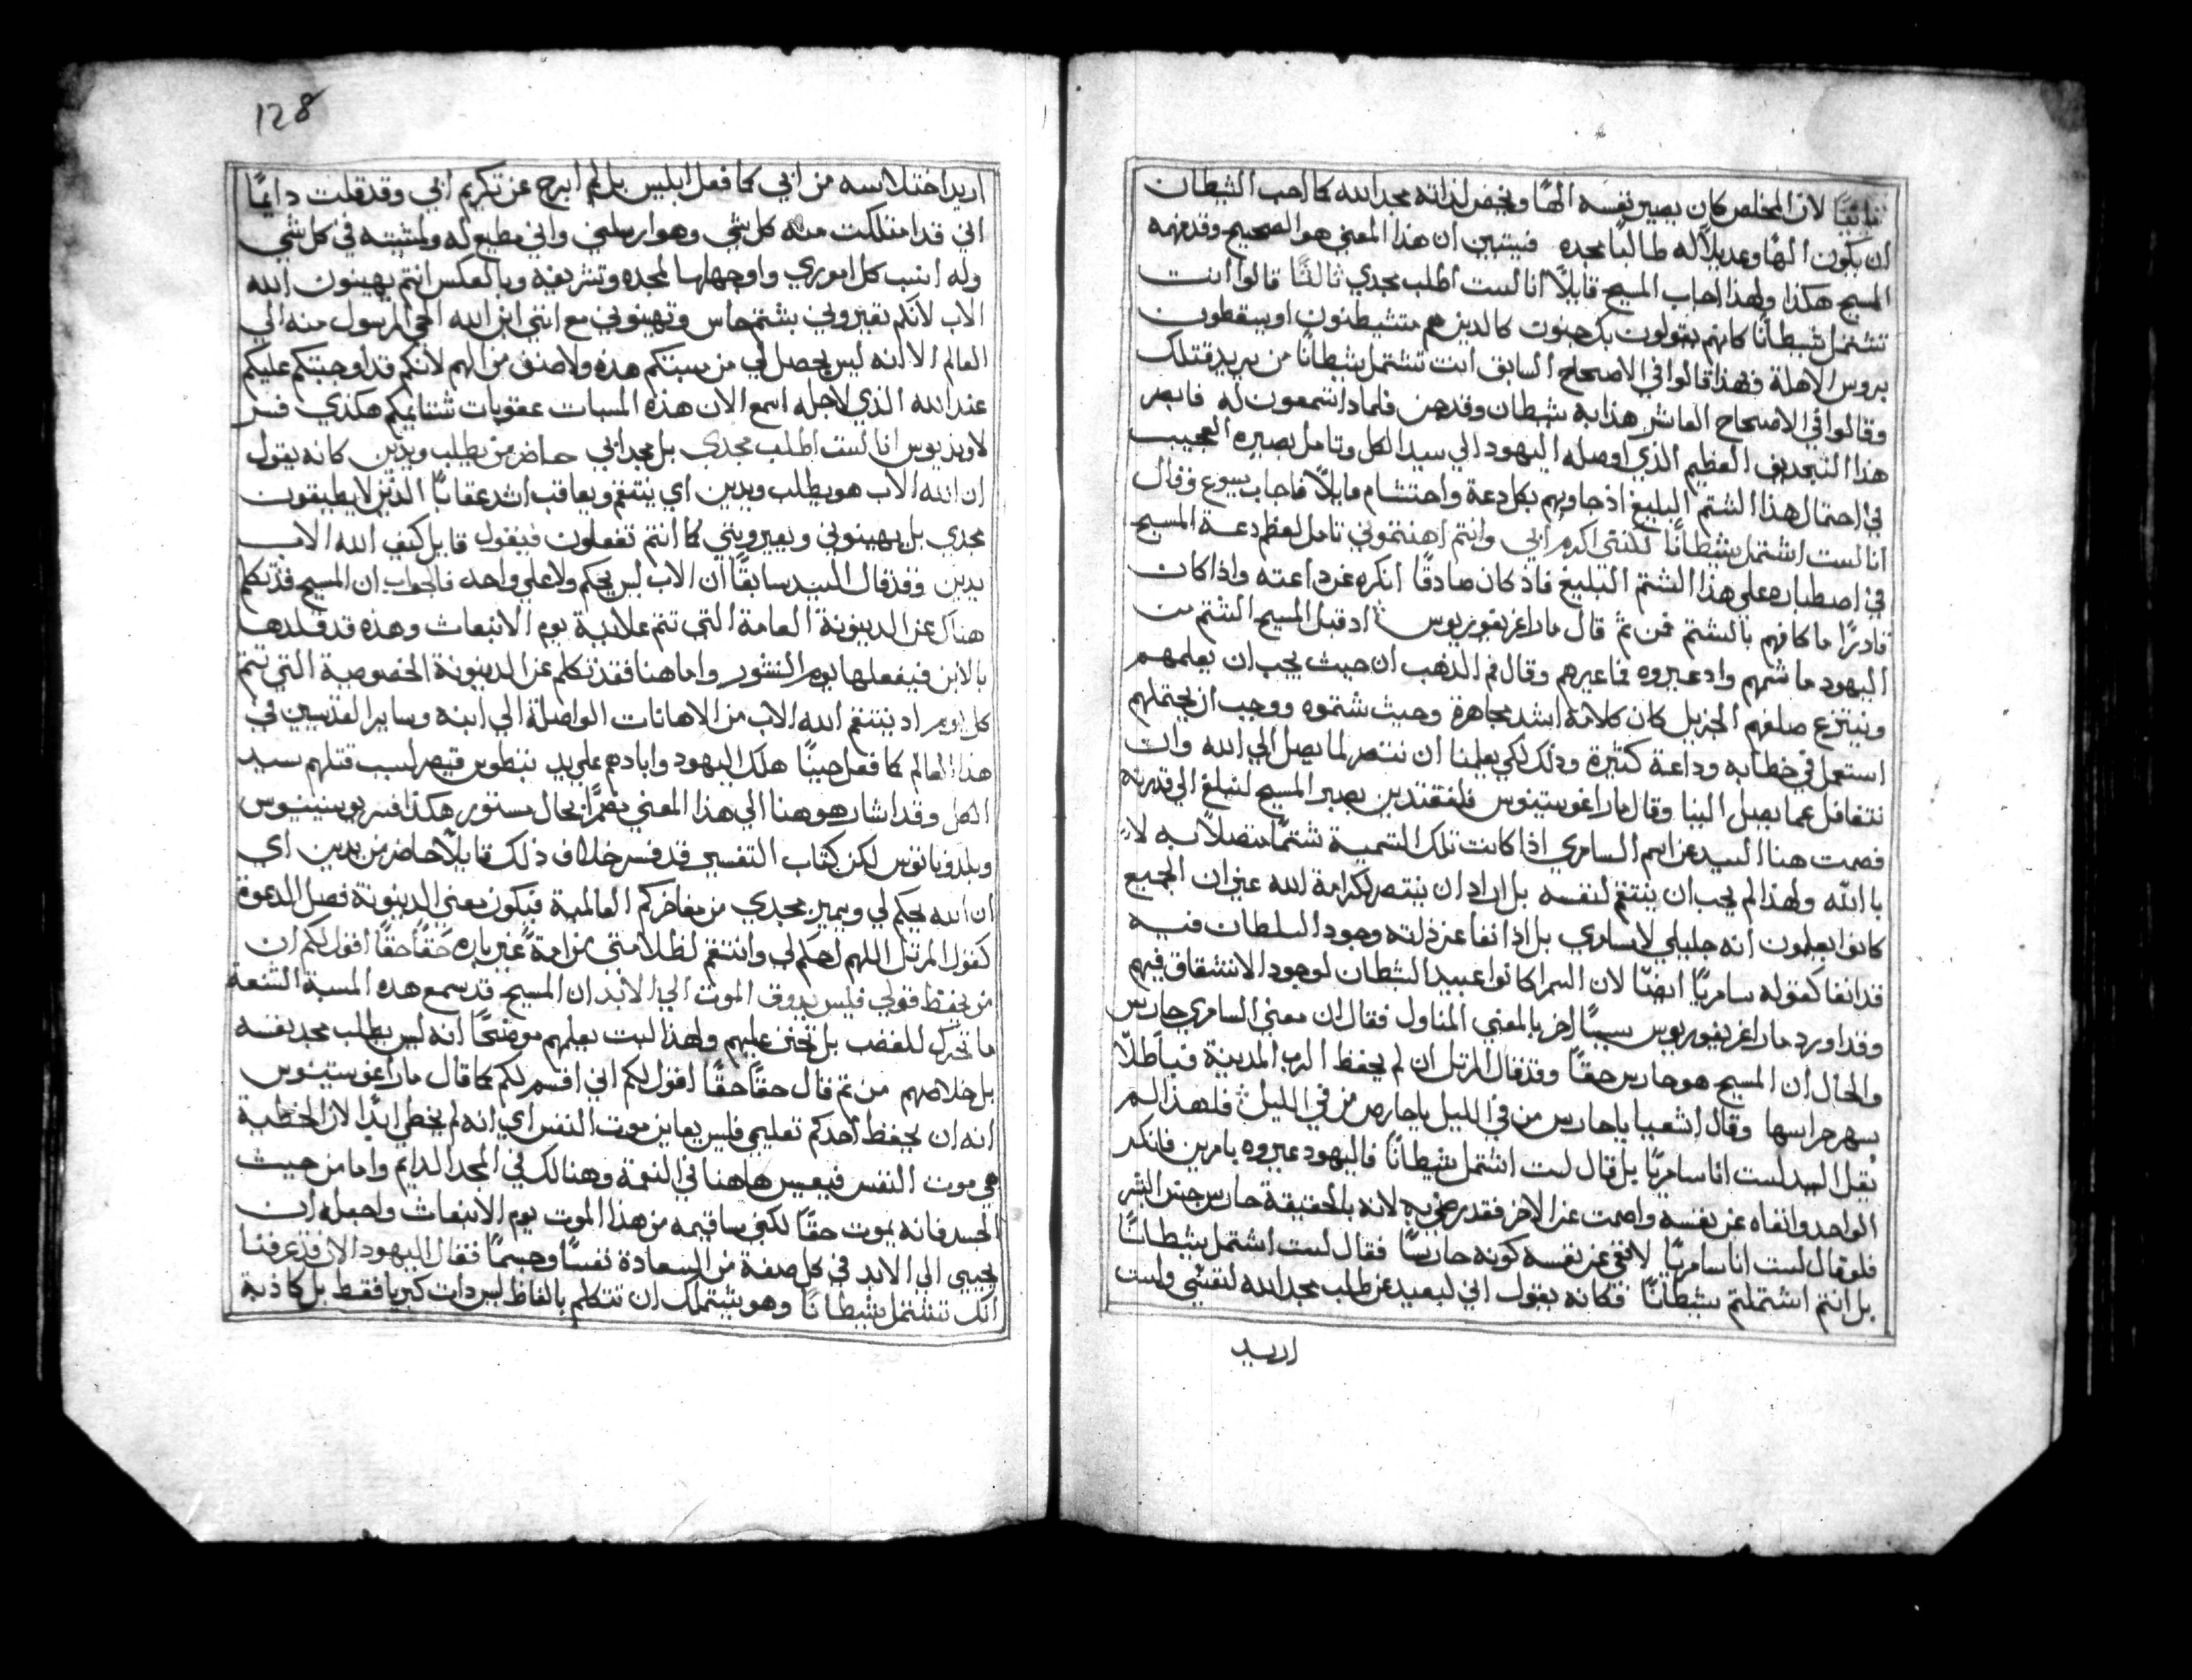 ثانيًا لان المخلص كان يصير نفسه الهًا ويخص لذاته مجد الله كما احب الشيطان
ان يكون الهًا وعديلًا له طالبًا مجده فيتبين ان هذا المعني هو الصحيح وقد فهمه
المسيح هكذا ولهذا اجاب المسيح قايلًا انا لست اطلب مجدي ثالثًا قالوا انت
تشتمل شيطانًا كانهم يقولون بك جنون كالذين هم متشيطنون او يسقطون
بروس الاهلة فهذا قالوا في الاصحاح السابق انت تشتمل شيطانًا من يريد قتلك
وقالوا في الاصحاح العاشر هذا به شيطان وقد جن فلماذا تسمعون له فابصر
هذا التجديف العظيم الذي اوصله اليهود الي سيد الكل وتامل بصبره العجيب
في احتمال هذا الشتم البليغ اذ جاوبهم بكل دعة واحتشام قايلًا فاجاب يسوع وقال
انا لست اشتمل بشيطانًا لكنني اكرم ابي وانتم اهنتموني تامل لعظم دعة المسيح
في اصطباره علي هذا الشتم البليغ فاذ كان صادقًا انكره عن دعته واذا كان
قادرًا ما كافهم بالشتم فمن ثم قال مار اغريغوريوس اذ قبل المسيح الشتم من
اليهود ما شتمهم واذ عيروه فما عيرهم وقال فم الذهب ان حيث يجب ان يعلمهم
وينتزع صلفهم الجزيل كان كلامه اشد مجاهرة وحيث شتموه ووجب ان يحتملهم
استعمل في خطابه وداعة كثيرة وذلك لكي يعلمنا ان ننتصر لما يصل الي الله وان
نتغافل عما يصل الينا وقال مار اغوستينوس فلنقتدين بصبر المسيح لنبلغ الي قدرته
فصمت هنا السيد عن اسم السامري اذا كانت تلك التسمية شتمًا متصلًا به لا
بالله ولهذا لم يجب ان ينتقم لنفسه بل اراد ان ينتصر لكرامة الله غير ان الجميع
كانوا يعلمون انه جليلي لا سامري بل اذ انفا عن ذاته وجود السلطان فيه
قد انفا كقوله سامريًا ايضًا لان السمرا كانوا عبيد الشطان لوجود الانشقاق فيهم
وقد اورد مار اغريغوريوس سببًا اخر بالمعني المتاول فقال ان معني السامري حارس
والحال ان المسيح هو حارس حقًا وقد قال المرتل ان لم يحفظ الرب المدينة فباطلًا
يسهر حراسها وقال اشعيا يا حارس من في الليل يا حارس من في الليل فلهذا لم
يقل السيد لست انا سامريًا بل قال لست اشتمل شيطانًا فاليهود عيروه بامرين فانكر
الواحد وانفاه عن نفسه واصمت عن الاخر فقد رضي به لانه بالحقيقة حارس جنس البشر
فلو قال لست انا سامريًا لانفي عن نفسه كونه حارسًا فقال لست اشتمل بشيطانًا
بل انتم اشتملتم بشيطانًا فكانه يقول اني لبعيد عن طلب مجد الله لنفسي ولست
اريد
128
اريد اختلاسه من ابي كما فعل ابليس بل لم ابرح عن تكريم ابي وقد قلت دايمًا
اني قد امتلكت منه كل شي وهو ارسلني واني مطيع له ولمشيته في كل شي
وله انسب كل اموري واوجهها لمجده وتشريفه وبالعكس انتم تهينون الله
الاب لانكم تعيروني بشتم خاس وتهينوني مع انني ابن الله الحي المرسول منه الي
العالم الا انه ليس يحصل لي من سبتكم هذه ولا صنف من الهم لانكم قد اوجبتكم عليكم
عند الله الذي لاجله اسمع الان هذه المسبات عقوبات شتايمكم هكذي فسر
لاونديوس انا لست اطلب مجدي بل مجد ابي حاضر من يطلب ويدين كانه يقول
ان الله الاب هو يطلب ويدين اي ينتقم ويعاقب اشد عقابًا الذين لا يطيقون
مجدي بل يهينوني ويعيرونني كما انتم تفعلون فيقول قايل كيف الله الاب
يدين وقد قال السيد سابقًا ان الاب ليس يحكم ولا علي واحد فالجواب ان المسيح قد تكلم
هناك عن الدينونة العامة التي تتم علانية يوم الانبعاث وهذه قد قلدها
بالابن فيفعلها يوم النشور واما هنا فقد تكلم عن الدينونة الخصوصية التي تتم
كل يوم اذ ينتقم الله الاب من الاهانات الواصلة الي ابنه وساير القديسين في
هذا العالم كما فعل حينًا هلك اليهود وابادهم علي يد تيطوس قيصر لسبب قتلهم سيد
الكل وقد اشار هو هنا الي هذا المعني بحال مستور هكذا فسر يوستينوس
وبلدوناتوس لكن كتاب التفسير قد فسر خلاف ذلك قايلًا حاضر من يدين اي
ان الله يحكم لي ويميز مجدي من مفاخركم العالمية فيكون معني الدينونة فصل الدعوة
كقول المرتل اللهم احكم لي وانتقم لظلامتي من امة غير باره حقًا حقًا اقول لكم ان
من يحفظ قولي فليس يذوق الموت الي الابد ان المسيح قد سمع هذه المسبة الشنعة
ما تحرك للغضب بل تحنن عليهم ولهذا لبث يعلمهم موضحًا انه ليس يطلب مجد نفسه
بل خلاصهم من ثم قال حقًا حقًا اقول لكم اني اقسم لكم كما قال مار اغوستينوس
انه ان يحفظ احدكم تعليمي فليس يعاين موت النفس اي انه لم يخطي ابدًا لان الخطية
هي موت النفس فيعيش هاهنا في النعمة وهنالك في المجد الدايم واما من حيث
الجسد فانه يموت حقًا لكني ساقيمه من هذا الموت يوم الانبعاث واجعله ان
يحيي الي الابد في كل صفة من السعادة نفسًا وجسمًا فقال اليهود الان قد عرفنا
انك تشتمل بشيطانًا وهو يشتملك ان تتكلم بالفاظ ليس ذات كبريا فقط بل كاذبة